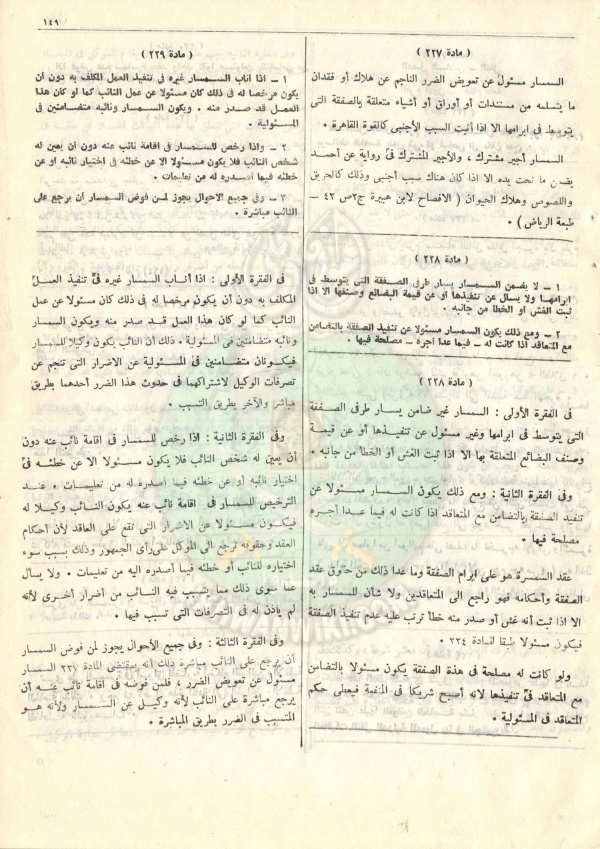 ١٤٩
( مادة ٢٢٧ )
السمسار مسئول عن تعويض الضرر الناجم عن هلاك أو فقدان
ما يتسلمه من مستندات أو أوراق أو أشياء متعلقة بالصفقة التى
يتوسط فى ابرامها الا اذا أثبت السبب الأجنبى كالقوة القاهرة .
السمسار أجير مشترك ، والأجير المشترك فى رواية عن أحمد
يضمن ما تحت يده الا اذا كان هناك سبب أجنبى وذلك كالحريق
واللصوص وهلاك الحيوان ( الافصاح لابن هبيرة ج٢ص ٤٢ –
طبعة الرياض ) .
( مادة ٢٢٨ )
١ – لا يضمن السمسار يسار طرفى الصفقة التى يتوسط فى
ابرامها ولا يسأل عن تنفيذها أو عن قيمة البضائع وصنفها الا اذا
ثبت الغش أو الخطأ من جانبه .
٢ – ومع ذلك يكون السمسار مسئولا عن تنفيذ الصفقة بالتضامن
مع المتعاقد اذا كانت له – فيما عدا اجره – مصلحة فيها .
( مادة ٢٢٨ )
فى الفقرة الأولى : السمسار غير ضامن يسار طرفى الصفقة
التى يتوسط فى ابرامها وغير مسئول عن تنفيذها أو عن قيمة
وصنف البضائع المتعلقة بها الا اذا ثبت الغش أو الخطأ من جانبه .
وفى الفقرة الثانية : ومع ذلك يكون السمسار مسئولا عن
تنفيذ الصفقة بالتضامن مع المتعاقد اذا كانت له فيما عدا أجره
مصلحة فيها .
عقد السمسرة هو على ابرام الصفقة وما عدا ذلك من حقوق عقد
الصفقة وأحكامه فهو راجع الى المتعاقدين ولا شأن للسمسار به
الا اذا ثبت أنه غش أو صدر منه خطأ ترتب عليه عدم تنفيذ الصفقة
فيكون مسئولا طبقا للمادة ٢٢٤
ولو كانت له مصلحة فى هذة الصفقة يكون مسئولا بالتضامن
مع المتعاقد فى تنفيذها لأنه أصبح شريكا فى المنفعة فيعطى حكم
المتعاقد فى المسئولية .
( مادة ٢٢٩ )
١ – اذا اناب السمسار غيره فى تنفيذ العمل المكلف به دون أن
يكون مرخصا له فى ذلك كان مسئولا عن عمل النائب كما لو كان هذا
العمل قد صدر منه . ويكون السمسار ونائبه متضامنين فى
المسئولية .
٢ – واذا رخص للسمسار فى اقامة نائب عنه دون أن يعين له
شخص النائب فلا يكون مسئولا الا عن خطئه فى اختيار نائبه او عن
خطئه فيما اصدره له من تعليمات .
٣ – وفى جميع الاحوال يجوز لمن فوض السمسار ان يرجع على
النائب مباشرة .
فى الفقرة الأولى : اذا أناب السمسار غيره فى تنفيذ العمل
المكلف به دون أن يكون مرخصا له فى ذلك كان مسئولا عن عمل
النائب كما لو كان هذا العمل قد صدر منه ويكون السمسار
ونائبه متضامنين فى المسئولية . ذلك أن النائب يكون وكيلا للسمسار
فيكونان متضامنين فى المسئولية عن الاضرار التى تنجم عن
تصرفات الوكيل لاشتراكهما فى حدوث هذا الضرر أحدهما بطريق
مباشر والآخر بطريق التسبب .
وفى الفقرة الثانية : اذا رخص للسمسار فى اقامة نائب عنه دون
أن يعين له شخص النائب فلا يكون مسئولا الا عن خطئه فى
اختيار نائبه أو عن خطئه فيما أصدره له من تعليمات . عند
الترخيص للسمسار فى اقامة نائب عنه يكون النائب وكيلا له
فيكون مسئولا عن الاضرار التى تقع على العاقد لأن أحكام
العقد وحقوقه ترجع الى الموكل على رأى الجمهور وذلك بسبب سوء
اختياره للنائب أو خطئه فيما أصدره اليه من تعليمات . ولا يسأل
عما سوى ذلك مما يتسبب فيه النائب من أضرار أخرى لأنه
لم يأذن له فى التصرفات التى تسبب فيها .
وفى الفقرة الثالثة : وفى جميع الأحوال يجوز لمن فوض السمسار
أن يرجع على النائب مباشرة ذلك أنه بمقتضى المادة ٢٢٧ السمسار
مسئول عن تعويض الضرر ، فلمن فوضه فى اقامة نائب عنه أن
يرجع مباشرة على النائب لأنه وكيل عن السمسار ولأنه هو
المتسبب فى الضرر بطريق المباشرة .